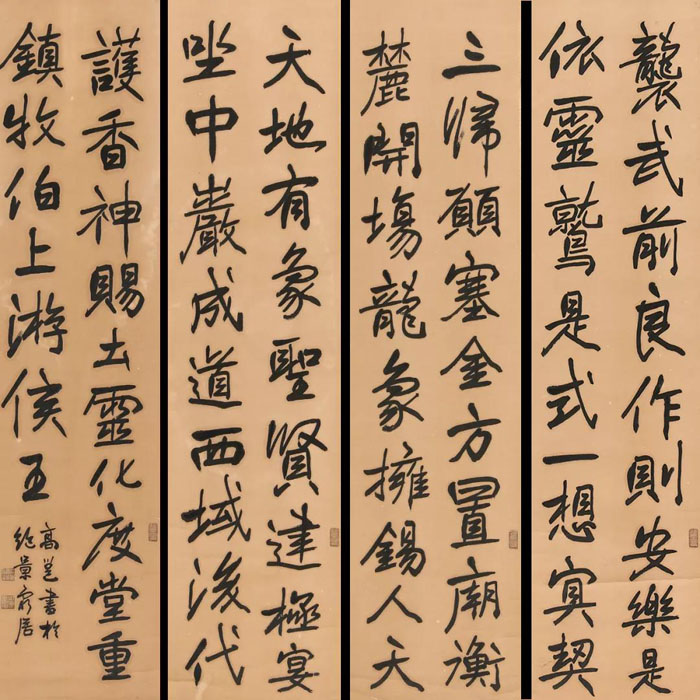 襲武前良作則安樂是
依靈鷲是式一想冥契
三歸願塞金方置廟衡
麓開場龍象擁錫人天
天地有象聖賢達極宴
坐中巖成道西域後代
護香神賜土靈化度堂重
鎮牧伯上游侯王
高邕書於
景窮居